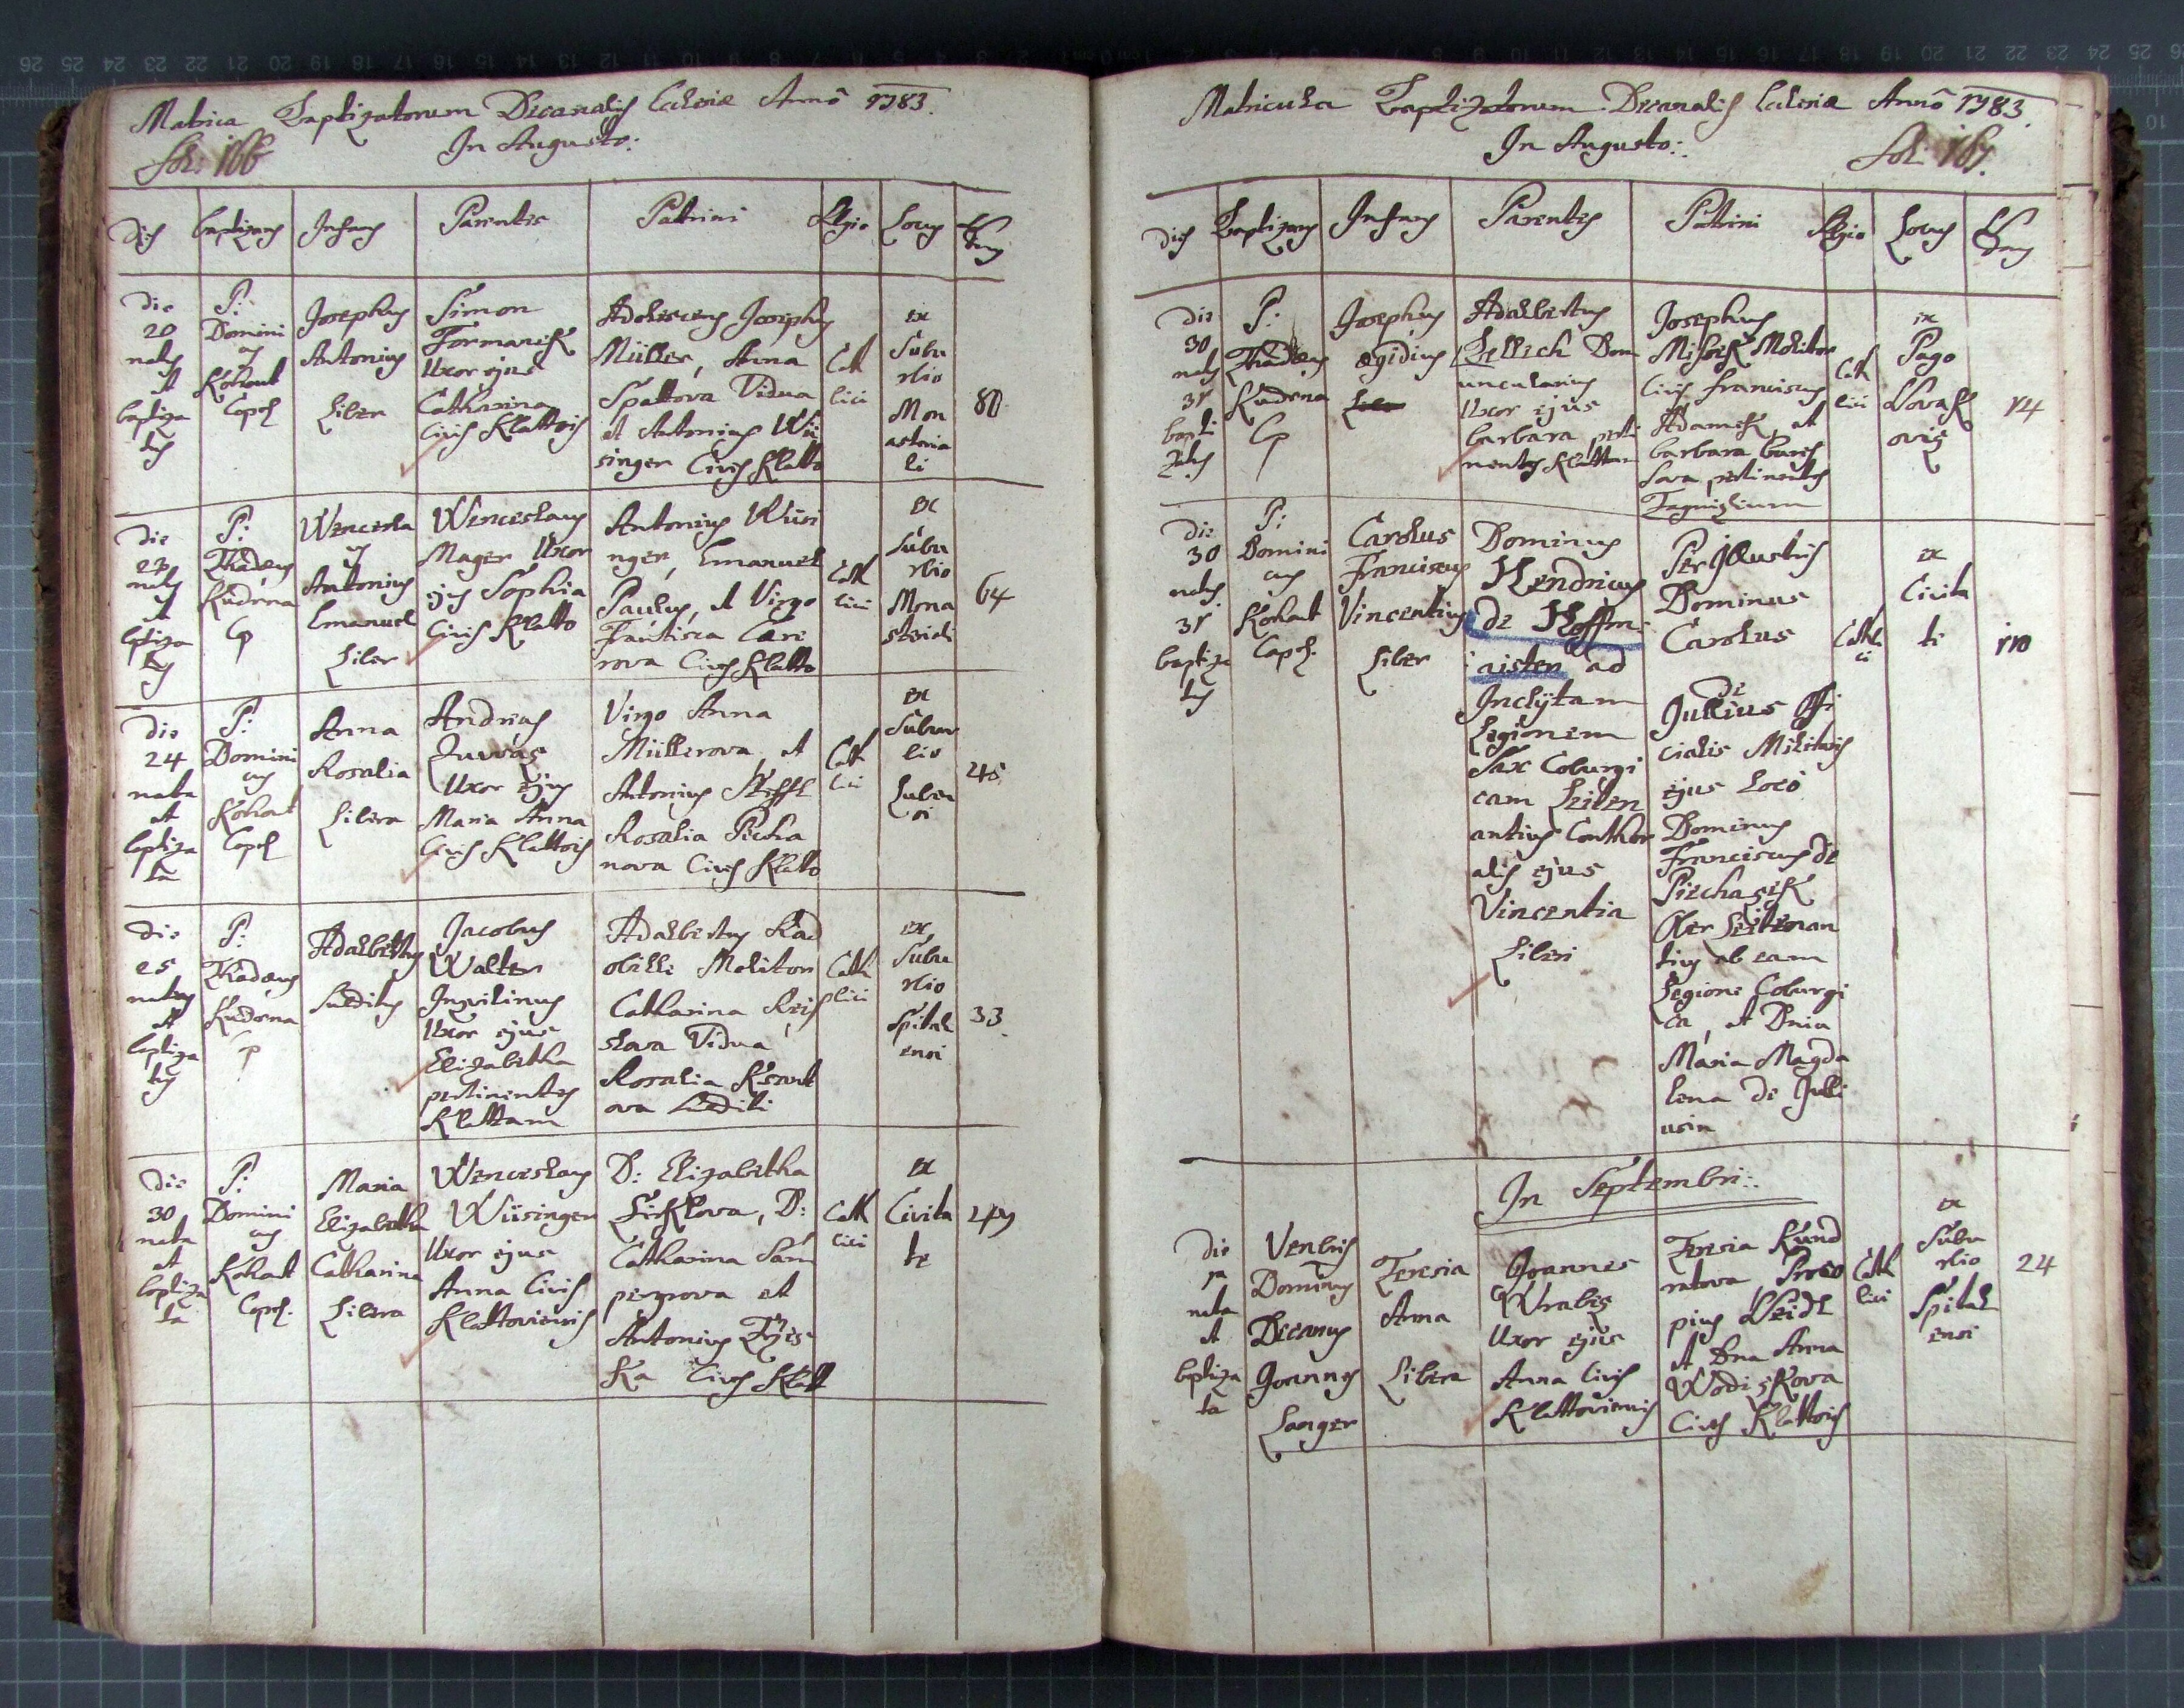 Matrica Baptizatorum Decanalis Eclesiæ Anno 1783.
Fol: 166
In Augusto:
Dies
baptizans
Infans
Parentes
Patrini
Religio
Locus
Domus
die
20
natus
et
baptiza
tus
P:
Domini
cus
Kohaut
Capel
Josephus
Antonius
Liber
Simon
Formanek
Uxor ejus
Catharina
Cives Klattois
Adolescens Josephus
Müller, Anna
Spattova Vidua
et Antonius Wü
singer Cives Klatto
Cath
lici
ex
Subu
rbio
Mon
asteria
li
80
die
23
natus
et
baptiza
tus
P:
Thadeus
Kudrna
Cp
Wencesla
us
Antonius
Emanuel
Liber
Wenceslaus
Mager Uxor
ejus Sophia
Cives Klatto
Antonius Wüsi
nger, Emanuel
Paulus, et Virgo
Cives Klatto
Cath
lici
ex
Subu
rbio
Mona
steriali
64
die
24
nata
et
baptiza
ta
P:
Domini
cus
Kohaut
Capel
Anna
Rosalia
Libera
Andreas
Uxor ejus
Maria Anna
Cives Klattois
Virgo Anna
Müllerova, et
Antonius Steffl
Rosalia Pecha
nova Cives Klatto
Cath
lici
ex
Subur
bio
45
die
25
natus
et
baptiza
tus
P:
Thadeus
Kudrna
Cp
Adalbertus
Subditus
Jacobus
Walter
Inquilinus
Uxor ejus
Elizabetha
pertinentes
Klattam
Adalbertus Rad
Molitor
Catharina Reis
slova Vidua
Rosalia
ova Subditi
Cath
lici
ex
Subu
rbio
Spital
ensi
33
die
30
nata
et
baptiza
ta
P:
Domini
cus
Kohaut
Capel.
Maria
Elizabetha
Catharina
Libera
Wenceslaus
Wüsinger
Uxor ejus
Anna Cives
Klattovienses
D: Elizabetha
Sirklova, D:
Catharina Sam
pergrova et
Antonius
ka Cives Klatt
Cath
lici
ex
Civita
te
Matricula Baptizatorum Decanalis Eclesiæ Anno 1783.
In Augusto:
Fol: 167.
dies
Baptizans
Infans
Parentes
Patrini
Religio
Locus
Domus
die
30
natus
31
bapti
zatus
P:
Thadeus
Kudrna
Cp
Josephus
ægidius
Adalbertus
Zellich Dom
uncularius
Uxor ejus
barbara, perti
nentes Klattam
Josephus
Molitor
Civis Franciscus
Adamek, et
barbara bures
sova pertinentes
Cath
lici
ex
Pago
Novak
ovis
14
die
30
natus
31
baptiza
tus
P:
Domini
cus
Kohaut
Capel.
Carolus
Franciscus
Vincentius
Liber
Dominus
Hendricus
de Hoffm:
aister ad
Inclÿtam
Legionem
Sax Coburgi
cam Leiten
antius Conthor
alis ejus
Vincentia
Liberi
Per Illustris
Dominus
Carolus
de
Jullius Offi
cialis Militaris
ejus Loco
Dominus
Franciscus de
Piechaczek
Ober Leitenan
tius ab eam
Legione Coburgi
ca, et Dnia
Maria Magda
lena de Julli
usin
Catholi
ci
ex
Civita
te
110
In Septembri:
die
1a
nata
et
baptiza
ta
Venbris
Dominus
Decanus
Joannes
Langer
Teresia
Anna
Libera
Joannes
Wrabes
Uxor ejus
Anna Cives
Klattovienses
Teresia Kund
ratova, Proco
pius Weidl
et Dna Anna
Wodiskova
Cives Klattois
Cath
lici
ex
Subu
rbio
Spital
ensi
24